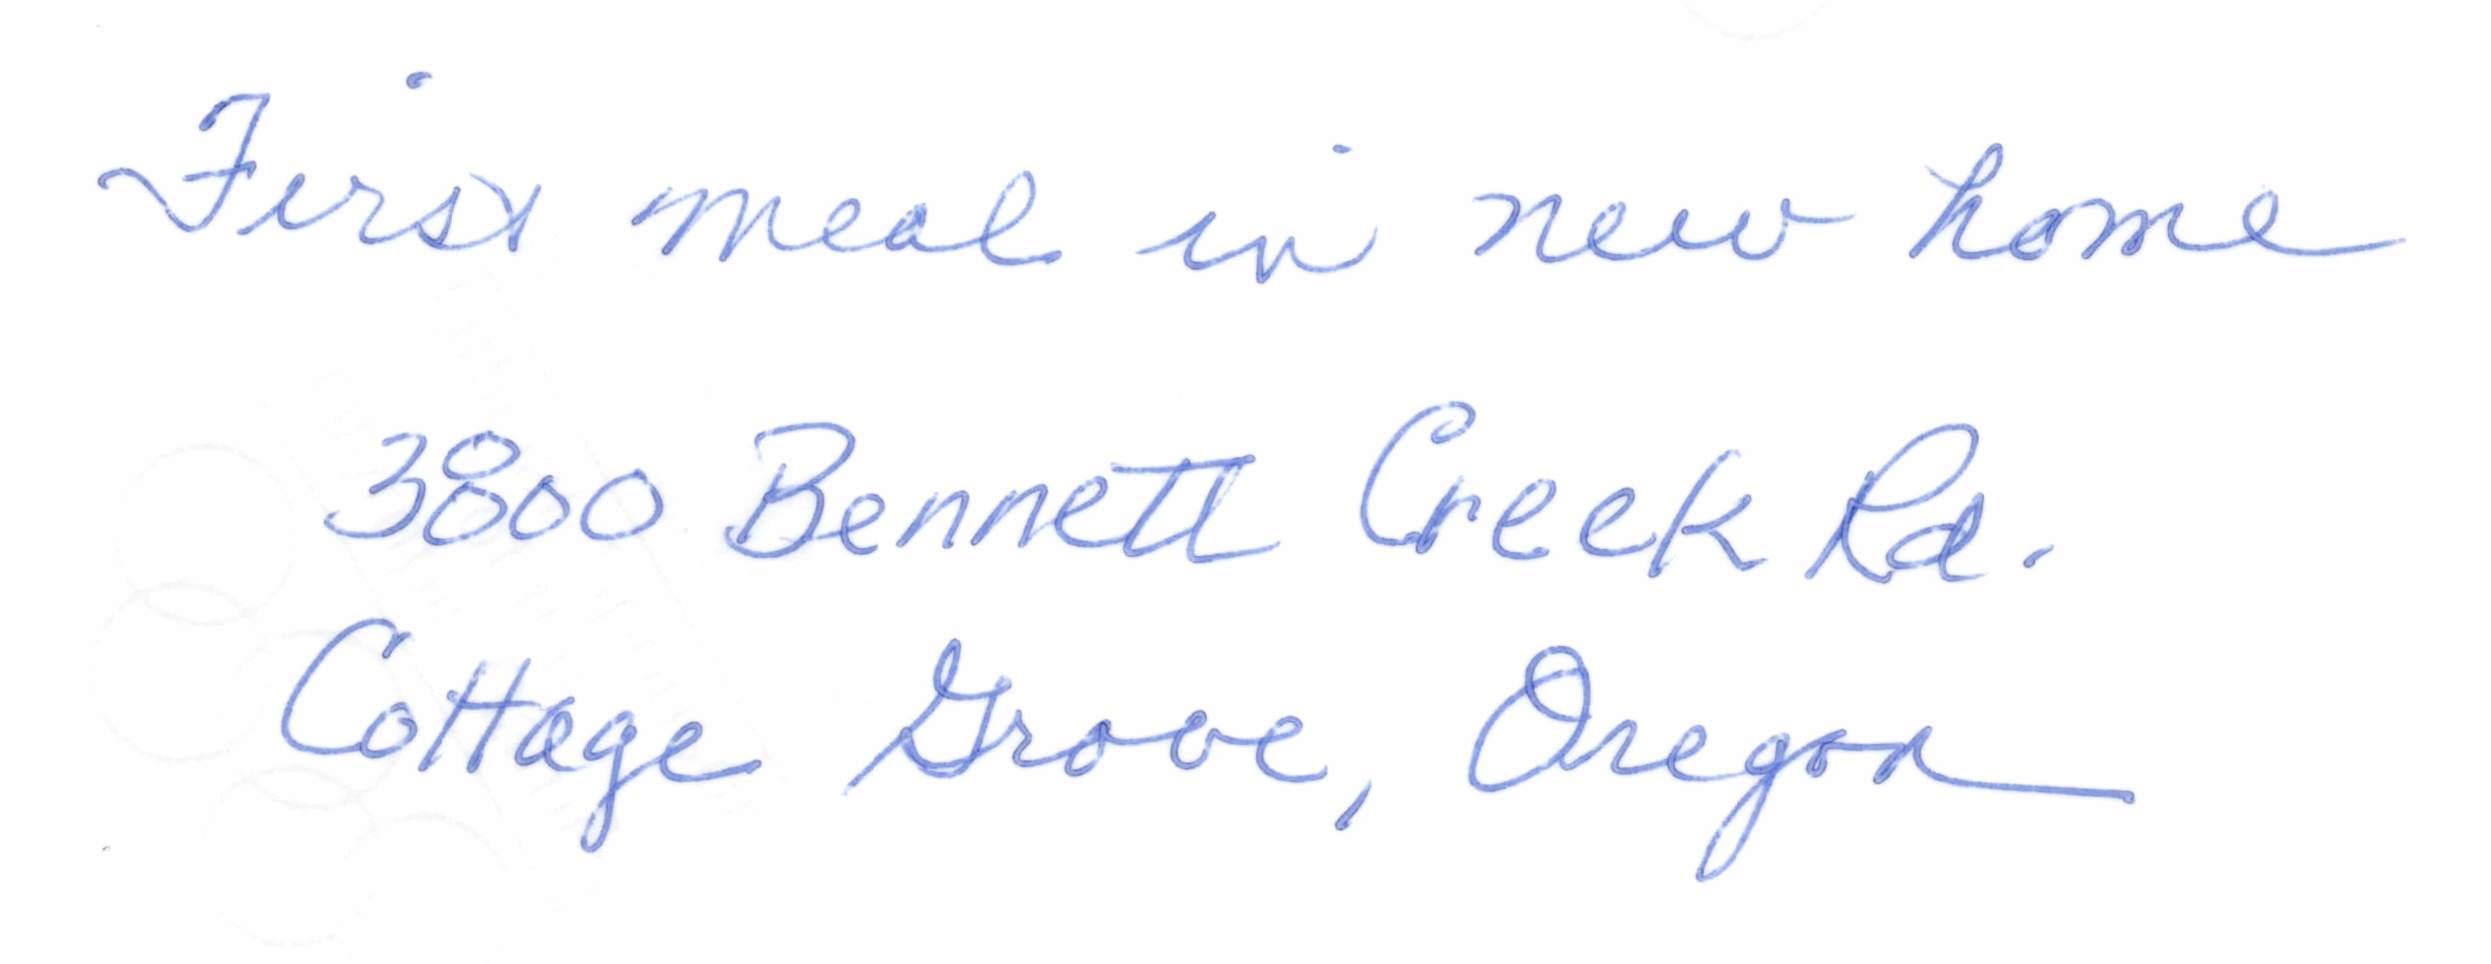 First meal in new home
3800 Bennett Creek Rd.
Cottage Grove, Oregon